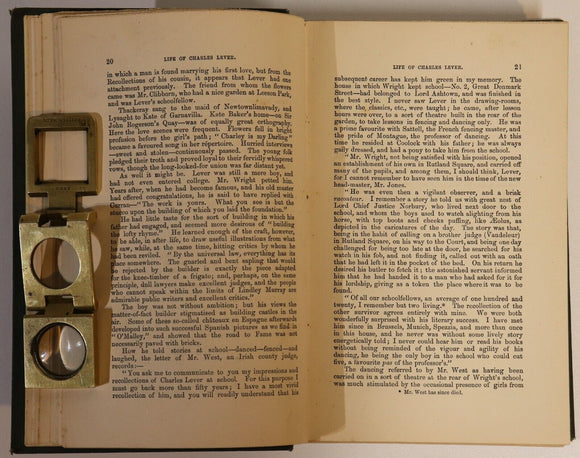 20 LIFE OF CHARLES LEVER.
in which a man is found marrying his first love, but from the
Recollections of his cousin, it appears that Lever had one
attachment previously. The friend from whom the flowers
came was Mr. Clibborn, who had a nice garden at Leeson Park,
and was Lever's schoolfellow.
Thackeray sang to the maid of Newtownlimavady, and
Lysaght to Kate of Garnavilla. Kate Baker's home—on Sir
John Rogerson's Quay—was of equally great orthography.
Here the love scenes were frequent. Flowers fell in bright
profusion before the girl's path; "Charley is my Darling"
became a favoured song in her repertoire. Hurried interviews
—sweet and stolen—continuously passed. The young folk
pledged their troth and proved loyal to their fervidly whispered
vows, though the nuptial union was as yet far distant yet.
As well it might be. Lever was still a mere boy, and
had not even entered college. Mr. Wright petted him.
Years after, when he had become famous, and his old master
had offered congratulations, he is said to have replied with
Garrac—"The work is yours. What you see is but the
stucco upon the building of which you laid the foundation."
He had little taste for the sort of building in which his
father had engaged, and seemed more desirous of "building
the lofty rhyme." He learned enough of the craft, however,
to be able, in after life, to draw useful illustrations from what
he saw, while, at the same time, hitting critics by whom he
had been reviled. "By the universal law, everything has its
place somewhere. The gnarled and bent sapling that would
be rejected by the builder is exactly the piece adapted
for the knee-timber of a frigate; and, perhaps, on the same
principle, dull lawyers make excellent judges, and the people
who cannot speak within the limits of Lindley Murray are
admirable public writers and excellent critics."
The boy was not without ambition; but his views the
matter-of-fact builder stigmatised as building castles in the
air. Some of these so-called châteaux en Espagne afterwards
developed into such successful Spanish pictures as we find in
"O'Malley," and showed that the road to Fame was not
necessarily paved with bricks.
How he told stories at school—danced—fenced—and
laughed, the letter of Mr. West, an Irish county judge,
records:—
"You ask me to communicate to you my impressions and
recollections of Charles Lever at school. For this purpose I
must go back more than fifty years; I have a most vivid
recollection of him, and you will readily understand that his
LIFE OF CHARLES LEVER. 21
subsequent career has kept him green in my memory. The
house in which Wright kept school—No. 2, Great Denmark
Street—had belonged to Lord Ashtown, and was finished in
the best style. I never saw Lever in the drawing-rooms,
where the classics, etc., were taught; he came, after lesson
hours were over, to a sort of theatre built in the rear of the
garden, to take lessons in fencing and dancing only. He was
a prime favourite with Sattell, the French fencing master, and
the pride of Montague, the professor of dancing. At this
time he resided at Coolock with his father; he was always
gaily dressed, and had a pony to take him from the school.
"Mr. Wright, not being satisfied with his position, opened
an establishment of his own in Rutland Square, and carried off
many of the pupils, and among them, I should think, Lever,
for I cannot remember to have seen him in the time of the new
head-master, Mr. Jones.
"He was even then a vigilant observer, and a brisk
raconteur. I remember a story he told us with great zest of
Lord Chief Justice Norbury, who lived next door to the
school, and whom the boys used to watch alighting from his
horse, with top boots and checks puffing, like Æolus, as
depicted in the caricatures of the day. The story was that,
being in the habit of calling on a brother judge (Vandeleur)
in Rutland Square, on his way to the Court, and being one day
challenged for being too late, or too early, he searched for his watch
in his fob, and not finding it, called out with an oath
that he had left it in the pocket of the bed. On his return he
desired his butler to fetch it; the astonished servant informed
him that he had handed it to a man who had called for it for
his lordship, giving as a token the place where it was to be
found.
"Of all our schoolfellows, an average of one hundred and
twenty, I remember but two living." The recollection of the
other survivor agrees entirely with mine. We were both
wonderfully surprised with his literary success. I have met
him since in Brussels, Munich, Spezzia, and more than once
in this house, and he never was without some lively story
energetically told; I never could hear him or read his books
without being reminded of the vigour and agility of his
dancing, he being the only boy in the school who could do
five, a favourite pas of the professor's."
The dancing referred to by Mr. West as having been
carried on in a sort of theatre at the rear of Wright's school,
was much stimulated by the occasional presence of girls from
* Mr. West has since died.